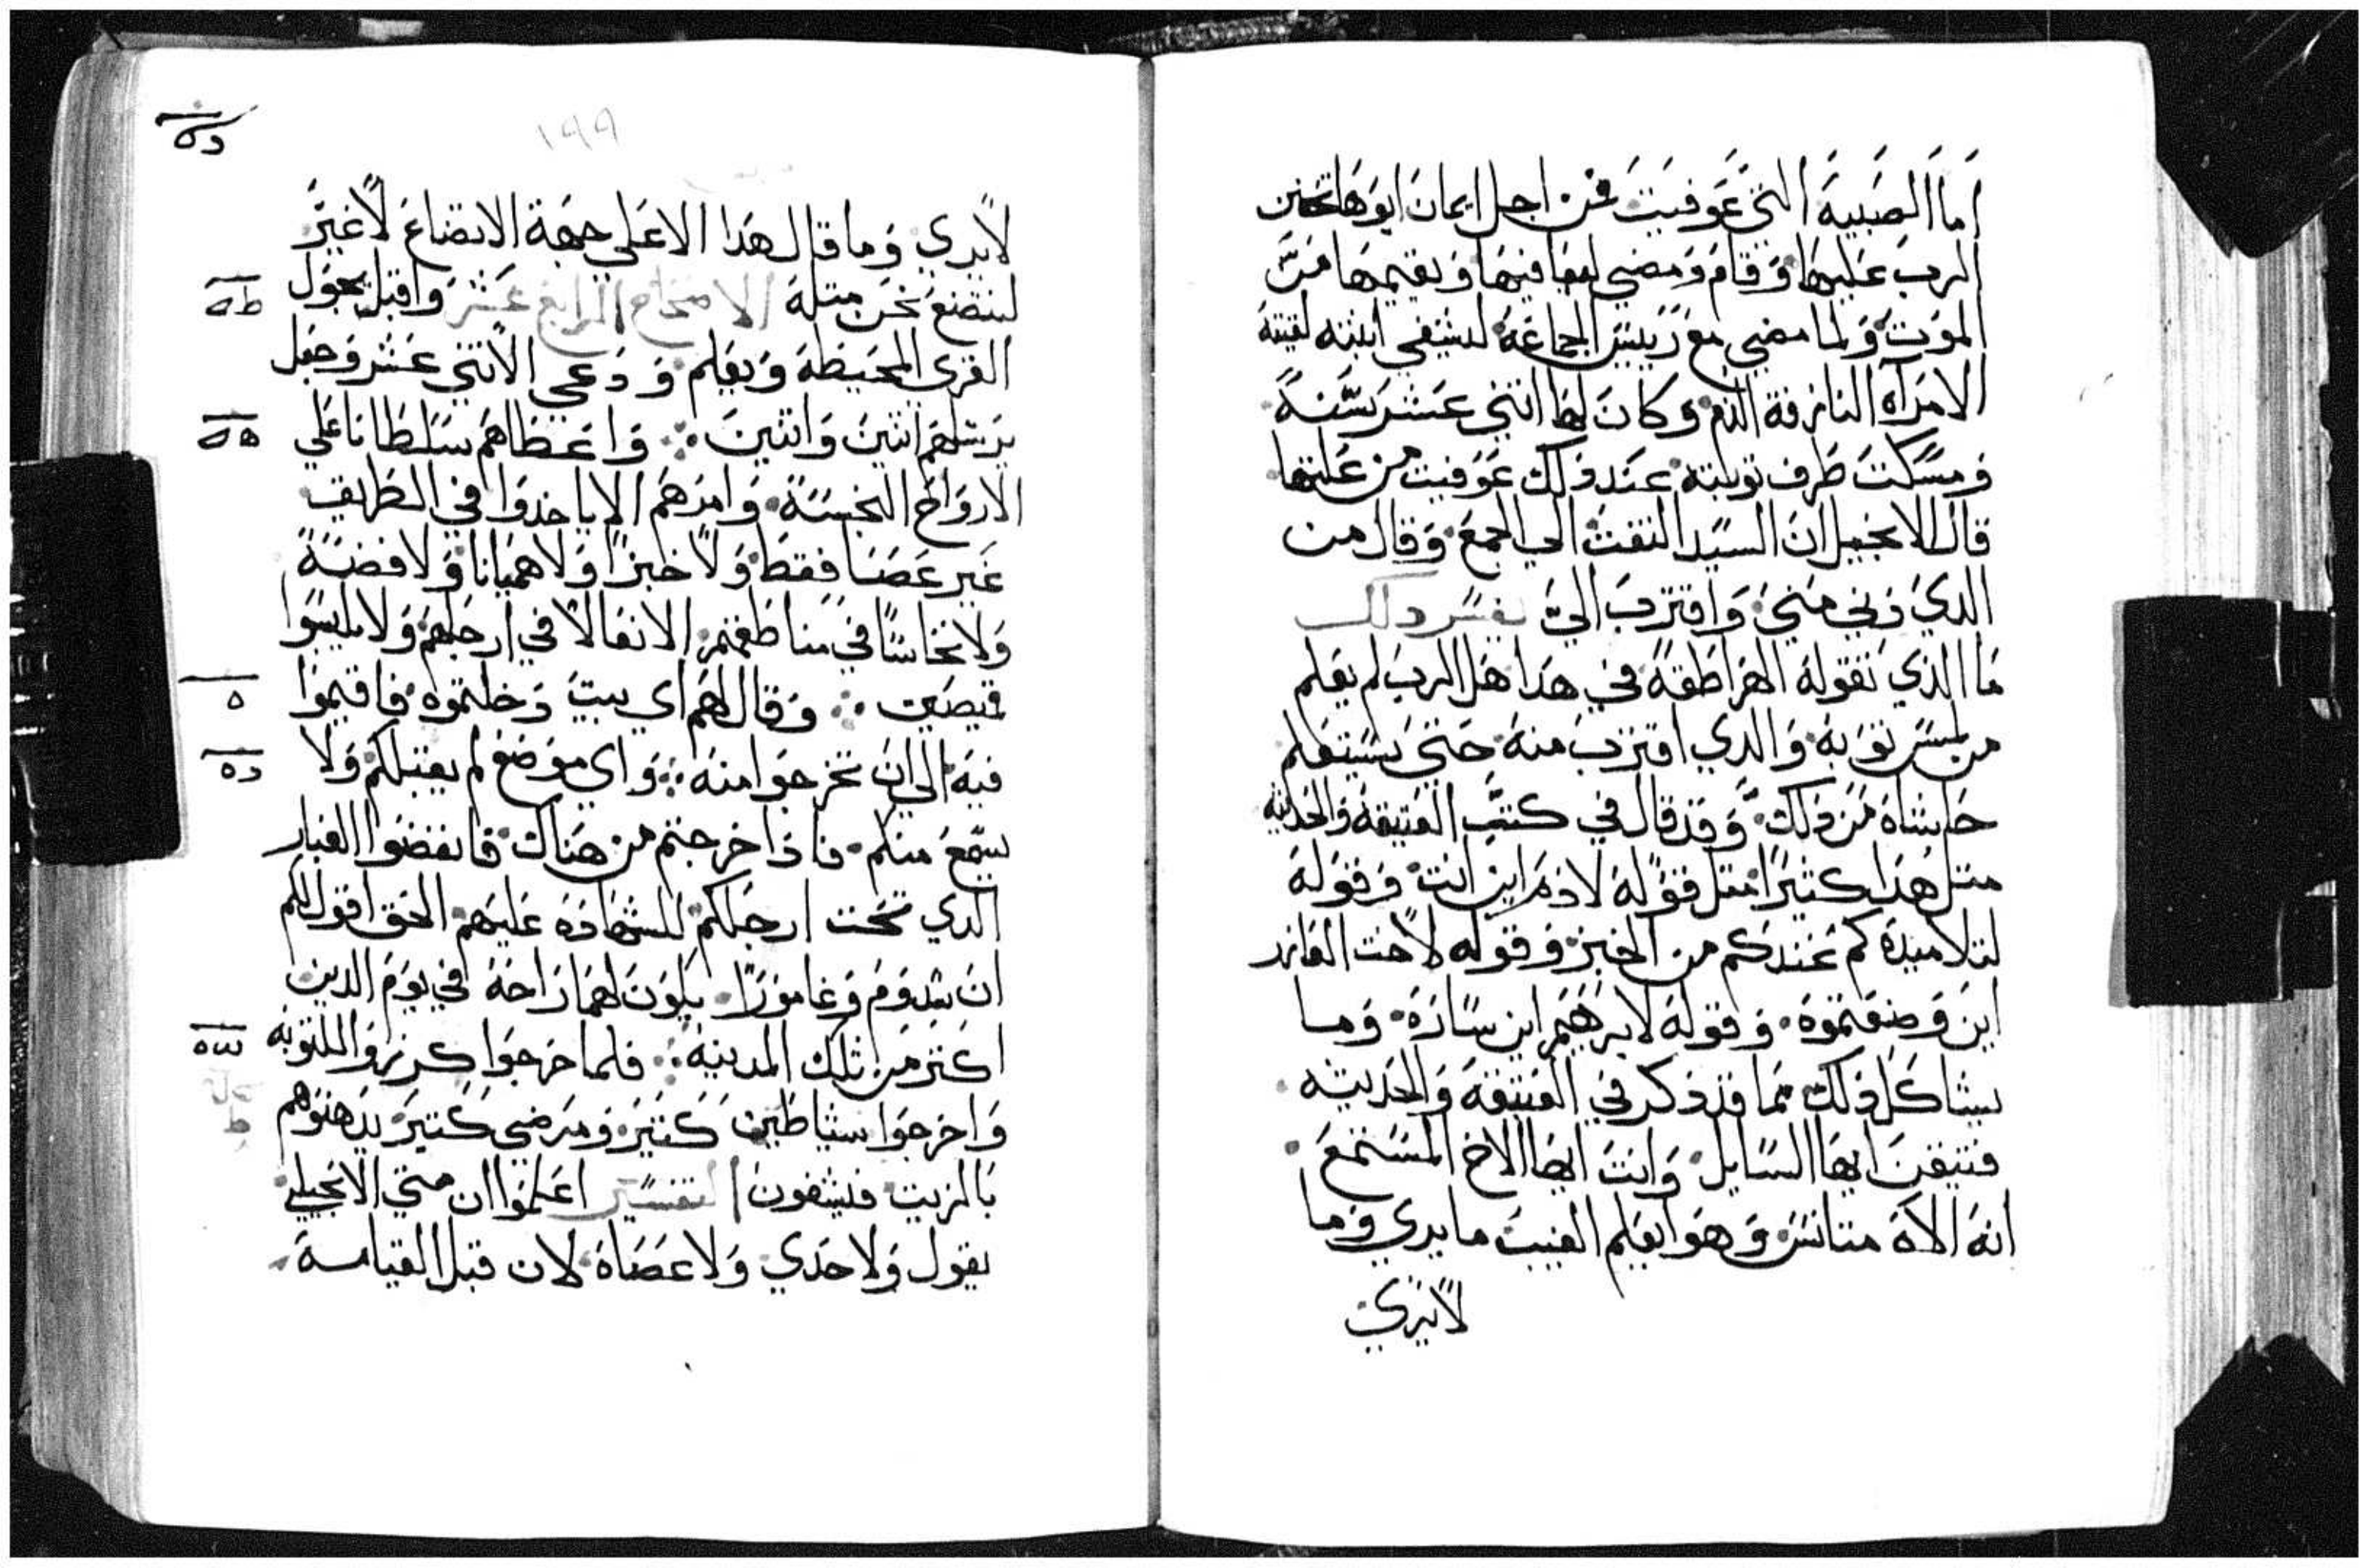 اما الصبية التي عوفيت فمن اجل ايمان ابوها تحنن
الرب عليها وقام ومضي ليعافيها ويقيمها من
الموت ولما مضي مع رييس الجماعة ليشفي ابنته لقيته
الامراه النازفة الدم وكان لها اتني عشر سنة
ومسكت طرف توبه عند ذلك عوفيت من علتها
قال الانجيل ان السيد التفت الي الجمع وقال من
الدي دني مني واقترب الي تفسير دلك
ما الذي تقوله الهراطقة في هدا هل الرب لم يعلم
من لمس توبه والدي اقترب منه حتي يستعلم
حاشاه من ذلك وقد قال في كتب العتيقة والحديثه
متل هدا كتيرا متل قوله لادم اين انت وقوله
لتلاميده كم عندكم من الخبز وقوله لاخت العازر
اين وضعتموه وقوله لابرهيم اين ساره وما
يشاكل ذلك مما قد ذكر في العتيقة والحديته
فتيقن ايها السايل وانت ايها الاخ المستمع
انه الاه متانس وهو يعلم الغيب ما يدري وما
لا يدري
١٩٩
لا يدري وما قال هدا الا علي جهة الاتضاع لا غير
لنتضع نحن متله الاصحاح الرابع عشر واقبل يجول
القري المحيطة ويعلم ودعي الاتني عشر وجعل
يرسلهم اتنين واتنين واعطاهم سلطانا علي
الارواح النجسة وامرهم الا ياخدوا في الطريق
غير عصا فقط ولا خبزا ولا هميانا ولا فضة
ولا نحاسا في مناطقهم الا نعالا في ارجلهم ولا يلبسوا
قميصين وقال لهم اي بيت دخلتموه فاقيموا
فيه الي ان تخرجوا منه واي موضع لم يقبلكم ولا
يسمع منكم فاذا خرجتم من هناك فانفضوا الغبار
الدي تحت ارجلكم للشهادة عليهم الحق اقول لكم
ان سدوم وغامورا يكون لهما راحة في يوم الدين
اكتر من تلك المدينه فلما خرجوا كرزوا بالتوبه
واخرجوا شياطين كتير ومرضي كتير يدهنوهم
بالزيت فيشفون التفسير اعلموا ان متي الانجيلي
يقول ولا حدي ولا عصاه لان قبل القيامة